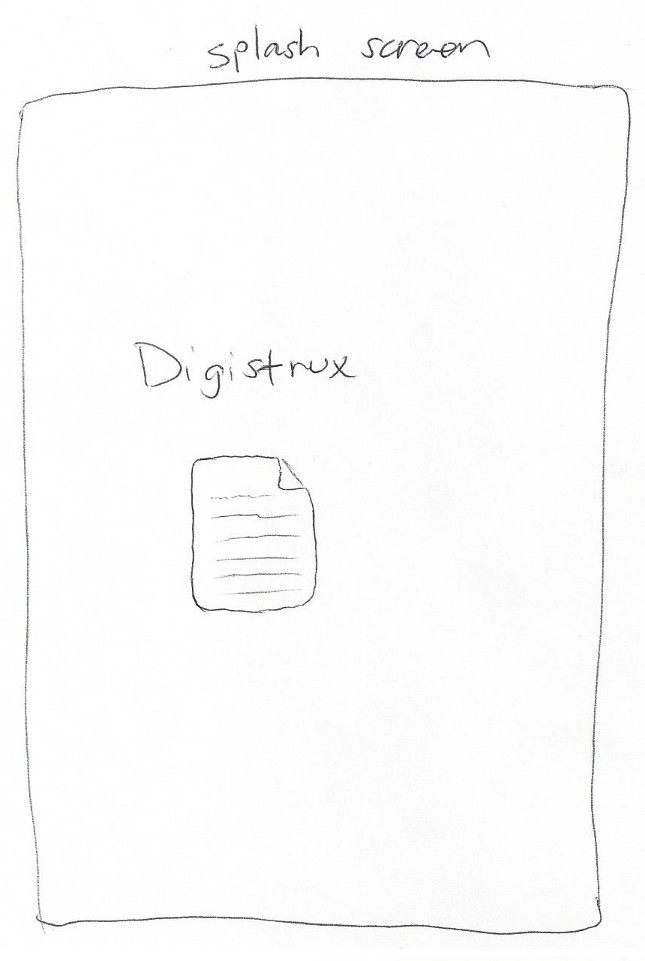 splash screen
Digistrux